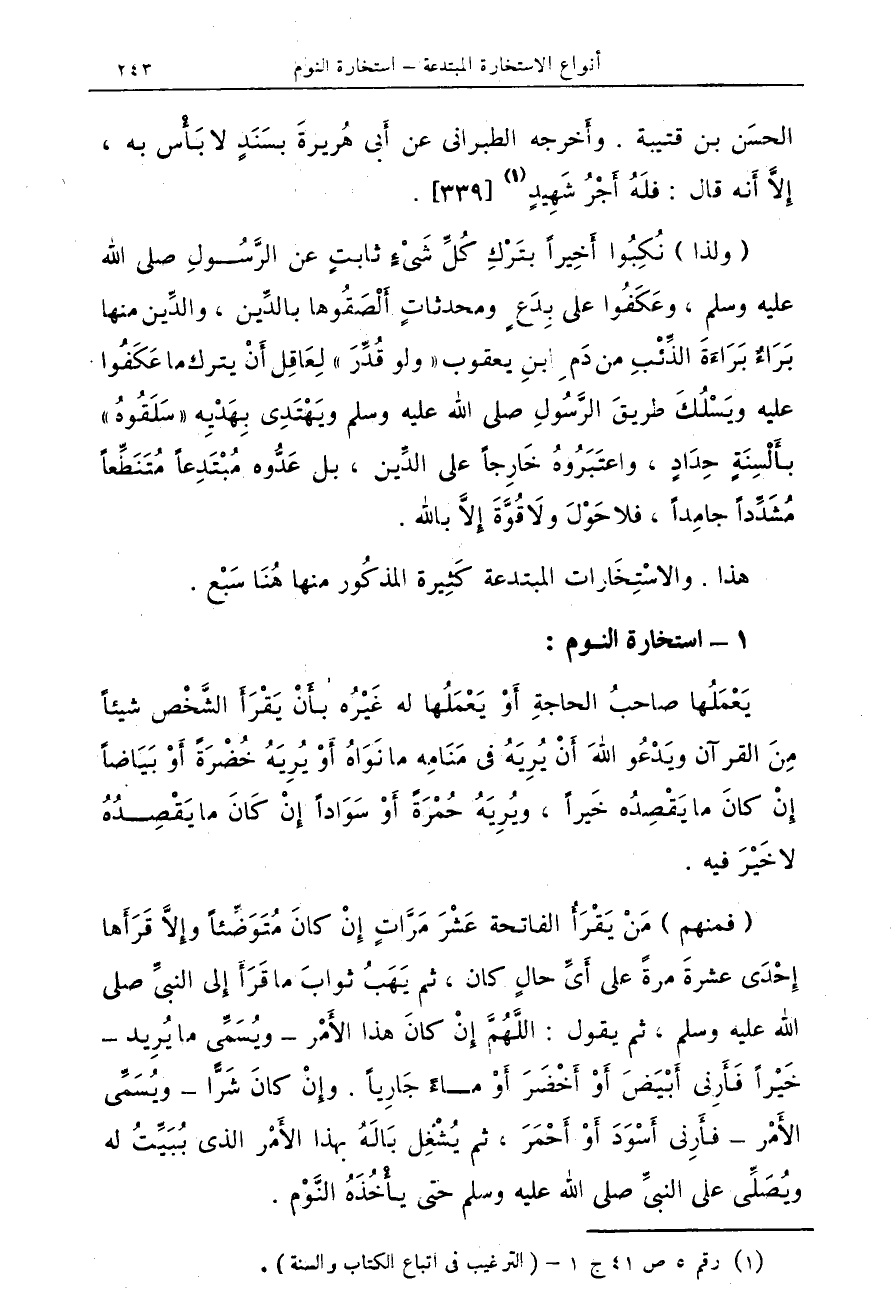 أنواع الاستخارة المبتدعة – استخارة النوم ٢٤٣
الحسَن بن قتيبة . وأَخرجه الطبرانى عن أبى هُريرةَ بسَنَدٍ لا بَأْس به ،
إِلاَّ أَنه قال : فلَهُ أَجْرُ شَهِيدٍ (١) [٣٣٩] .
( ولذا ) نُكِبُوا أَخِيراً بتَرْكِ كُلِّ شَىْءٍ ثابتٍ عن الرَّسُـولِ صلى الله
عليه وسلم ، وعَكَفُوا على بِدَعٍ ومحدثاتٍ أَلْصَقُوها بالدِّين ، والدِّين منها
بَرَاءٌ بَرَاءَةَ الذِّئْبِ من دَمِ ابنِ يعقوب « ولو قُدِّرَ » لِعَاقِل أَنْ يترك ما عَكَفُوا
عليه ويَسْلُكَ طريقَ الرَّسُولِ صلى الله عليه وسلم ويَهْتَدِى بِهَدْيِه « سَلَقُوهُ »
بأَلْسِنَةٍ حِدَادٍ ، واعتَبَرُوهُ خَارِجاً على الدِّين ، بل عَدُّوه مُبْتَدِعاً مُتَنَطِّعاً
مُشَدِّداً جامِداً ، فلا حَوْلَ ولَا قُوَّةَ إِلاَّ بالله .
هذا . والاسْتِخَارات المبتدعة كَثِيرة المذكُور منها هُنَا سَبْع .
١ – استخارة النـوم :
يَعْمَلُها صاحبُ الحاجةِ أَوْ يَعْمَلُها له غَيْرُه بأَنْ يَقْرَأَ الشَّخْص شيئاً
مِنَ القرآن ويَدْعُو اللهَ أَنْ يُرِيَهُ فى مَنَامِه ما نَوَاهُ أَوْ يُرِيَهُ خُضْرَةً أَوْ بَيَاضاً
إِنْ كانَ ما يَقْصِدُه خَيراً ، ويُرِيَهُ حُمْرَةً أَوْ سَوَاداً إِنْ كَانَ ما يَقْصِـدُهُ
لا خَيْرَ فيه .
( فمنهم ) مَنْ يَقْرَأُ الفاتحة عَشْرَ مَرَّاتٍ إِنْ كانَ مُتَوَضِّئاً وإِلاَّ قَرَأَها
إِحْدَى عشرةَ مرةً على أَىِّ حالٍ كان ، ثم يَهَبُ ثوابَ ما قَرَأَ إلى النبىِّ صلى
الله عليه وسلم ، ثم يقول : اللَّهُمَّ إِنْ كانَ هذا الأَمْر – ويُسَمِّى ما يُرِيد –
خَيْراً فَأَرِنى أَبْيَضَ أَوْ أَخْضَرَ أَوْ مـاءً جَارِياً . وإِنْ كانَ شَرًّا – ويُسَمِّى
الأَمْر – فأَرِنى أَسْوَدَ أَوْ أَحْمَرَ ، ثم يُشْغِل بَالَهُ بهذا الأَمْر الذى يُبَيِّتُ له
ويُصَلِّى على النبىِّ صلى الله عليه وسلم حتى يأْخُذَهُ النَّوْم .
(١) رقم ٥ ص ٤١ ج ١ – ( الترغيب فى اتباع الكتاب والسنة ) .